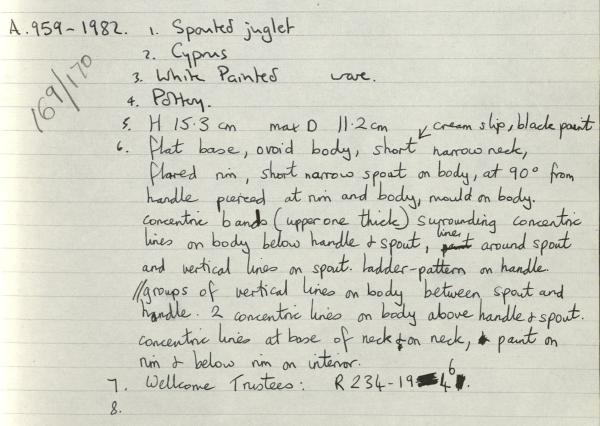 A.959-1982. 1. Spouted juglet
2. Cyprus
3. White Painted ware.
4. Pottery.
169/170
5. H 15.3 cm max D 11.2 cm
cream slip, black paint
6. flat base, ovoid body, short narrow neck,
flared rim, short narrow spout on body, at 90° from
handle pierced at rim and body, mould on body.
concentric bands (upper one thick) surrounding concentric
lines on body below handle & spout, lines around spout
and vertical lines on spout. ladder-pattern on handle.
//groups of vertical lines on body between spout and
handle. 2 concentric lines on body above handle & spout.
concentric lines at base of neck & on neck, paint on
rim & below rim on interior.
7. Wellcome Trustees: R 234-1946.
8.